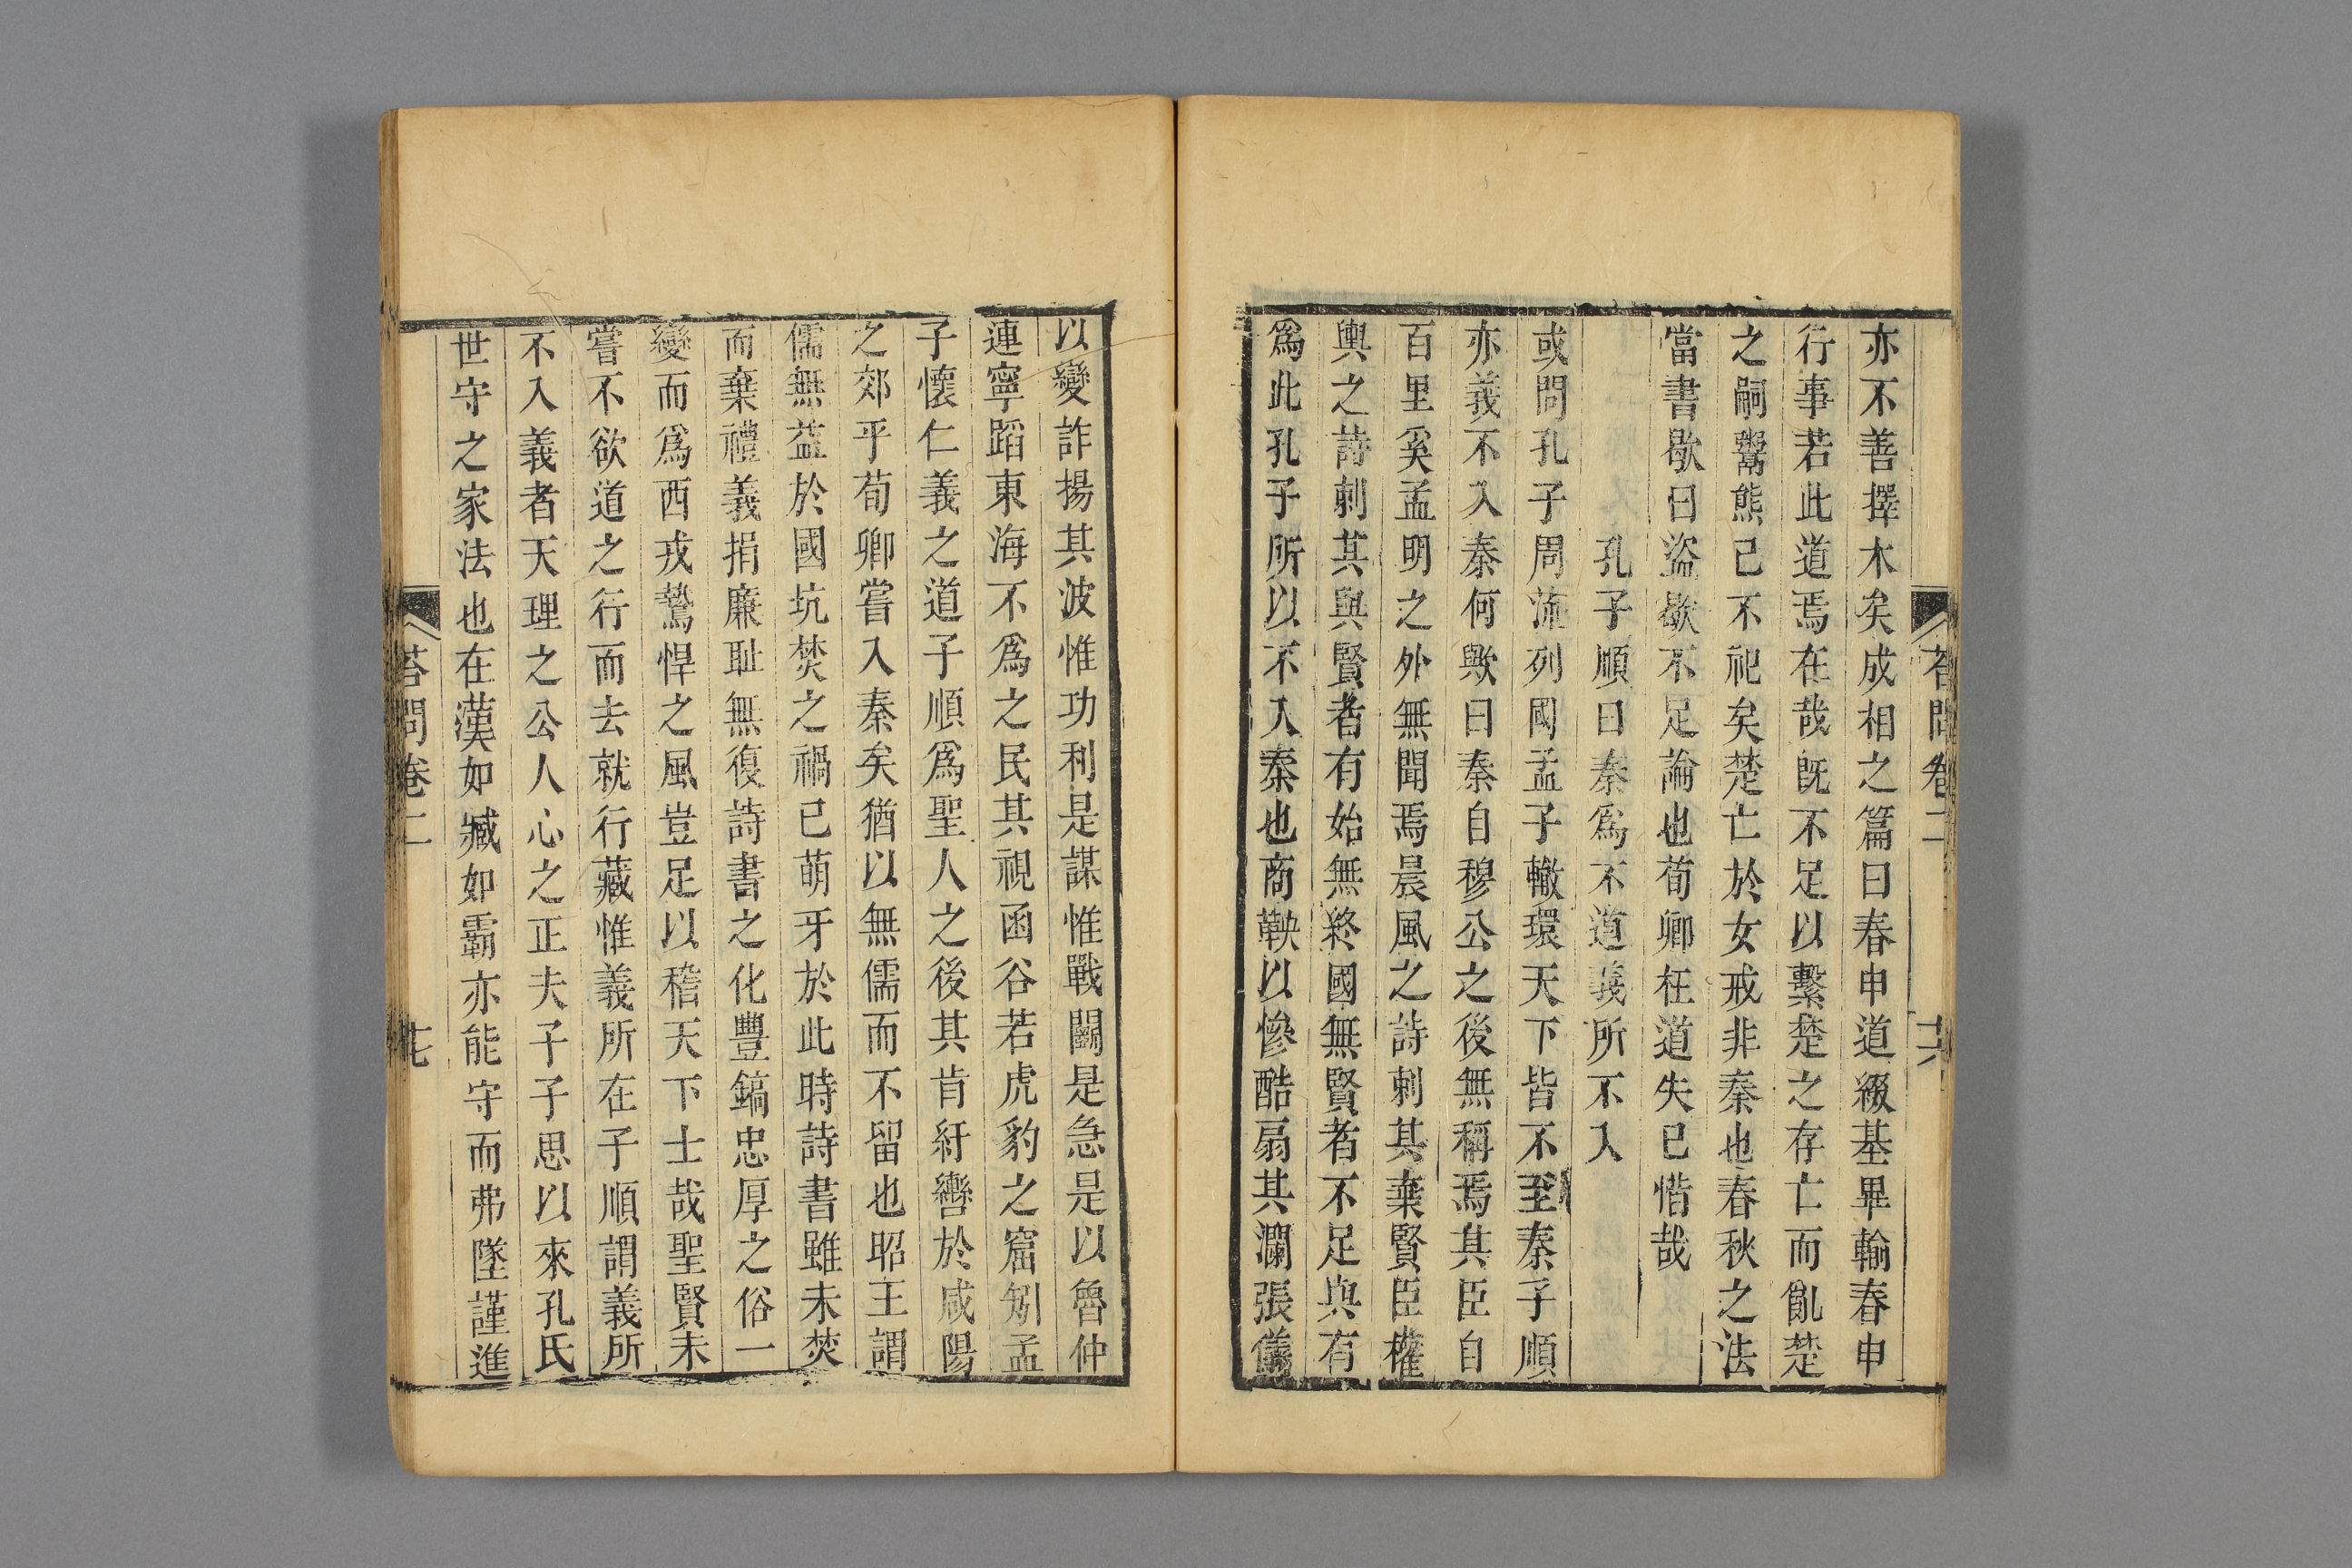 答問卷二 十六
亦不善擇木矣成相之篇曰春申道綴基畢輸春申
行事若此道焉在哉旣不足以繫楚之存亡而亂楚
之嗣鬻熊已不祀矣楚亡於女戒非秦也春秋之法
當書歇曰盜歇不足論也荀卿枉道失已惜哉
孔子順曰秦爲不道義所不入
或問孔子周流列國孟子轍環天下皆不至秦子順
亦義不入秦何歟曰秦自穆公之後無稱焉其臣自
百里奚孟明之外無聞焉晨風之詩刺其棄賢臣權
輿之詩刺其與賢者有始無終國無賢者不足與有
爲此孔子所以不入秦也商鞅以慘酷扇其瀾張儀
以變詐揚其波惟功利是謀惟戰鬭是急是以魯仲
連寧蹈東海不爲之民其視函谷若虎豹之窟矧孟
子懷仁義之道子順爲聖人之後其肯紆轡於咸陽
之郊乎荀卿嘗入秦矣猶以無儒而不留也昭王謂
儒無益於國坑焚之禍已萌牙於此時詩書雖未焚
而棄禮義捐廉耻無復詩書之化豐鎬忠厚之俗一
變而爲西戎鷙悍之風豈足以稽天下士哉聖賢未
嘗不欲道之行而去就行藏惟義所在子順謂義所
不入義者天理之公人心之正夫子子思以來孔氏
世守之家法也在漢如臧如霸亦能守而弗墜謹進
答問卷二 七